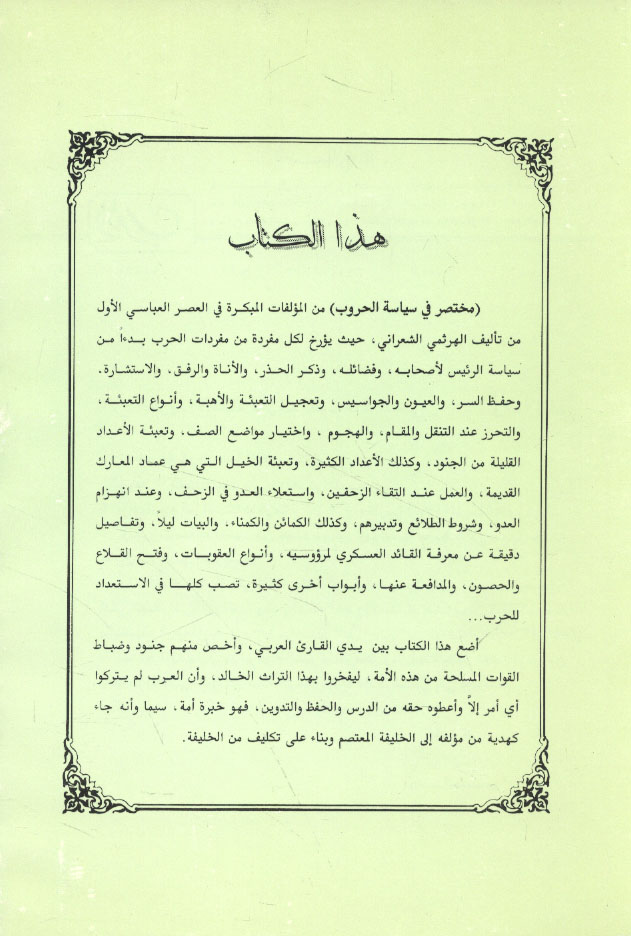 هذا الكتاب
(مختصر في سياسة الحروب) من المؤلفات المبكرة في العصر العباسي الأول
من تأليف الهرثمي الشعراني، حيث يؤرخ لكل مفردة من مفردات الحرب بدءاً من
سياسة الرئيس لأصحابه، وفضائله، وذكر الحذر، والأناة والرفق، والاستشارة،
وحفظ السر، والعيون والجواسيس، وتعجيل التعبئة والأهبة، وأنواع التعبئة،
والتحرز عند التنقل والمقام، والهجوم ، واختيار مواضع الصف، وتعبئة الأعداد
القليلة من الجنود، وكذلك الأعداد الكثيرة، وتعبئة الخيل التي هي عماد المعارك
القديمة، والعمل عند التقاء الزحفين، واستعلاء العدو في الزحف، وعند انهزام
العدو، وشروط الطلائع وتدبيرهم، وكذلك الكمائن والكمناء، والبيات ليلاً، وتفاصيل
دقيقة عن معرفة القائد العسكري لمرؤوسيه، وأنواع العقوبات، وفتح القلاع
والحصون، والمدافعة عنها، وأبواب أخرى كثيرة، تصب كلها في الاستعداد
للحرب...
أضع هذا الكتاب بين يدي القارئ العربي، وأخص منهم جنود وضباط
القوات المسلحة من هذه الأمة، ليفخروا بهذا التراث الخالد، وأن العرب لم يتركوا
أي أمر إلاً وأعطوه حقه من الدرس والحفظ والتدوين، فهو خبرة أمة، سيما وأنه جاء
كهدية من مؤلفه إلى الخليفة المعتصم وبناء على تكليف من الخليفة.